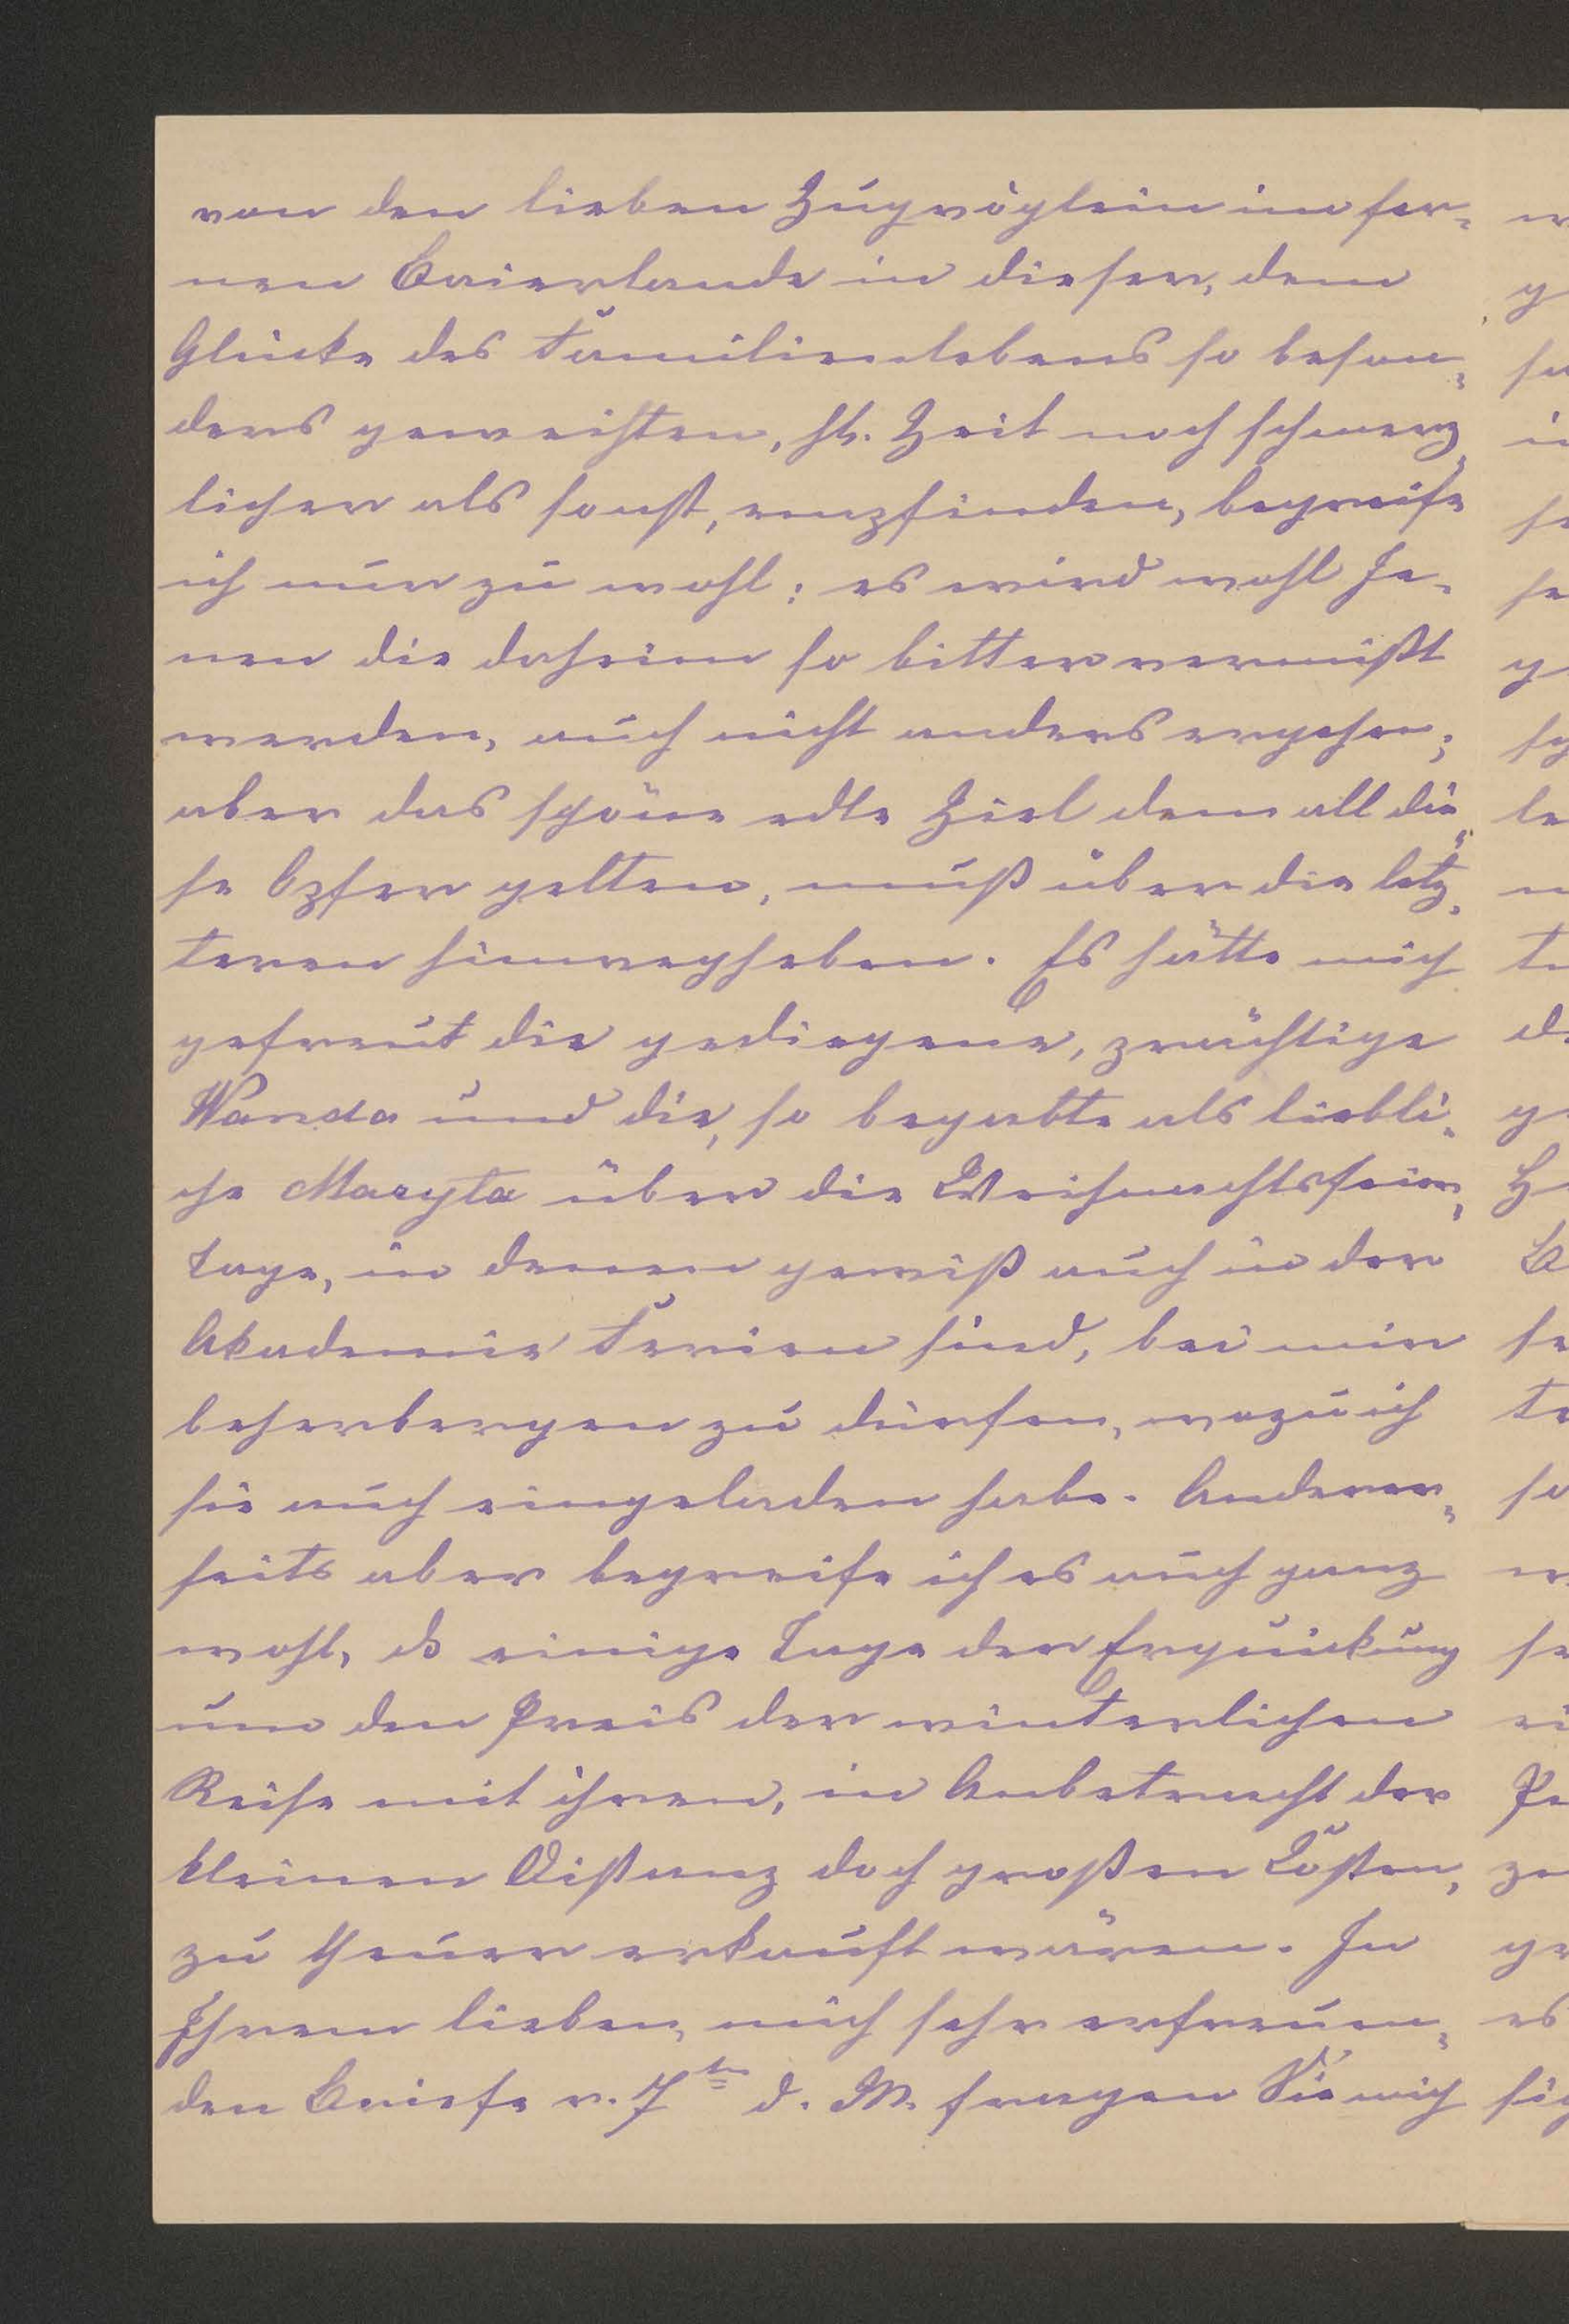 von den lieben Zugvöglein im fer-
nen Baierlande in dieser, dem
Glücke des Familienlebens so beson-
ders geweihten, hl. Zeit noch schmerz-
licher als sonst, empfinden, begreife
ich nur zu wohl; es wird wohl Je-
nen die daheim so bitter vermißt
werden, auch nicht anders ergehen;
aber das schöne edle Ziel dem all die-
se Opfer gelten, muß über die letz-
teren hinwegheben. Es hätte mich
gefreut die gediegene, prächtige
Wanda und die, so begabte als liebli-
che Maryla über die Weihnachtsfeier-
tage, in denen gewiß auch in der
Akademie Ferien sind, bei mir
beherbergen zu dürfen, wozu ich
sie auch eingeladen habe. Anderer-
seits aber begreife ich es auch ganz
wohl, dß einige Tage der Erquickung
um den Preis der winterlichen
Reise mit ihren, in Anbetracht der
kleinen Distanz doch großen Kosten,
zu theuer erkauft wären. In
Ihrem lieben, mich sehr erfreuen-
den Briefe v. 7ten d. M. fragen Sie mich